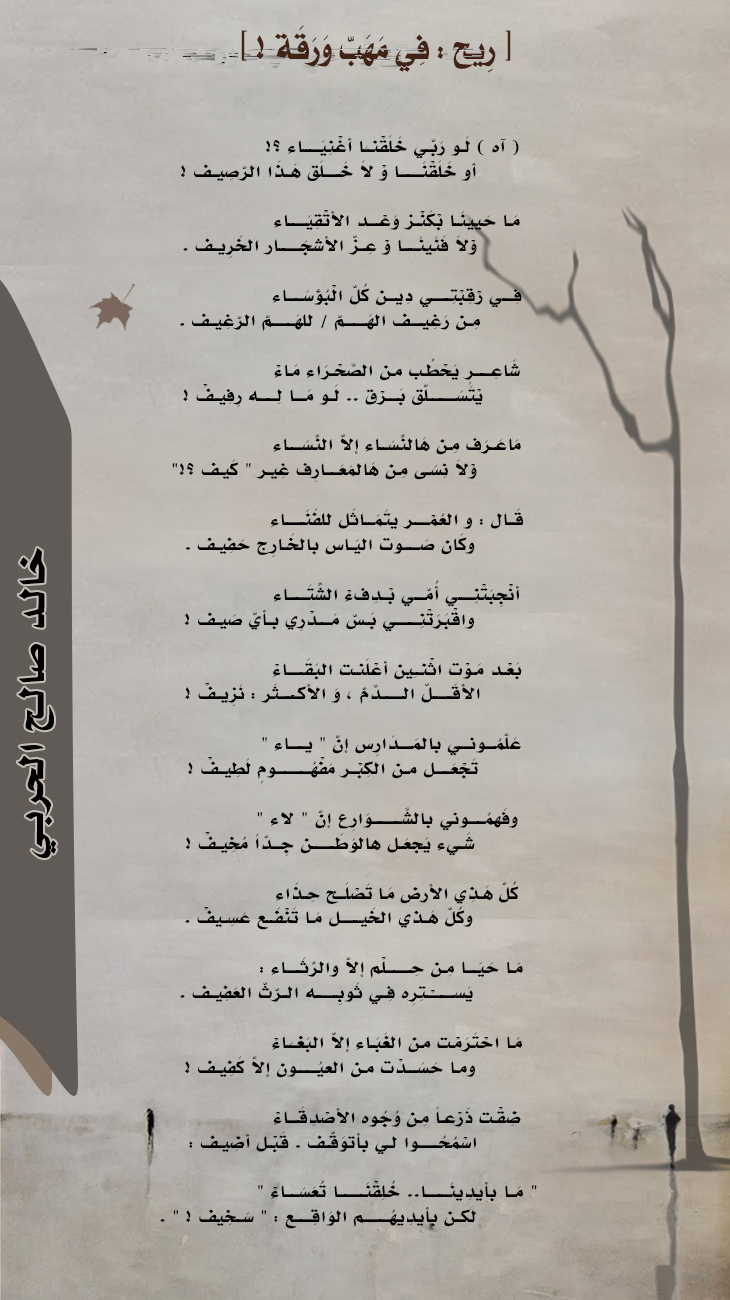 [ رِيح : فِي مَهَبّ وَرَقَة ! ]
( آه ) لَو رَبّي خَلَقْنـا أغْنِيَــاء ؟!
أو خَلَقْنَــــا وْ لاَ خَـــلَق هَـذَا الرّصِيـف !
مَـا حَيِينَـا بْكَنْـز وَعْـد الأتْقيَـاء
وْلاَ فَنَينَــا وْ عِـزّ الأشجَــار الخَرِيـف .
فـي رَقِبْتِــي دِيـن كُلّ الْبُؤَسَــاء
مِـن رَغِيــف الهَــمّ / للهَــمّ الرّغِيـف .
شَاعِــر يَحْطُب مـن الصّحْرَاء مَـاءْ
يْتَسَــــلّق بَــرْق .. لَـو مَــا لِـــه رِفِيـفْ !
مَاعَـرَف مِـن هَالنّسَـاء إلاّ النّسَـاء
وْلاَ نِسَـى مِـن هَالمَعَــارِف غِيـر " كَيـف ؟!"
قَـال : و العُمْــر يتَمَـاثَل للفَنَــاء
وكَان صَــوت اليَـاس بالخَـارِج حَفِيـف .
أنْجِبَتْنِــي أُمّــي بْـدِفءْ الشّتَــاء
واقْبَرَتْنِــــي بَـسّ مَــدْرِي بـأيّ صَيـف !
بَعْـد مَـوْت اثْنـين أعْلَنـت البَقَــاءْ
الأقَـــلّ الـــدّمْ ، وَ الأكـــثَر : نَزِيـفْ !
عَلّمُـونــي بالمَـدَارِس إنّ " يــاء "
تَجْعَــل مـن الكِبْـر مَفْهُــــوم لَطِيـفْ !
وفَهِمُـوني بالشّــــوَارِع إنّ " لاء "
شَـيء يَجعَـل هالوَطَـــن جِـدّاً مُخيـفْ !
كُلّ هَـذِي الأرضْ مَـا تَصْلَـح حِـذَاء
وكُلّ هَـذي الخَيـــل مَـا تَنْفَـع عَسِيـفْ .
مَـا حَيَــا مِـن حِــلْم إلاّ والرّثَـاء :
يَســتره فـي ثَوبِــه الـرّثّ العَفِيـف .
مَـا احْتَرَمْت مـن الغَبَـاء إلاّ البَغـاءْ
ومـا حَسَــدْت مـن العيُـــون إلاّ كَفِيـف !
ضقْت ذَرْعـاً مِـن وُجُوه الأصْدقَــاءْ
اسْمَحُــوا لـي بأتوَقّـف . قَبْـل أضيـف :
" مَـا بأيدِينَـــا.. خُلِقْنَـــا تُعَسَـاءْ "
لكـن بأيدِيهُـــم الوَاقِــع : " سَـخيف ! " .
خالد صالح الحربي